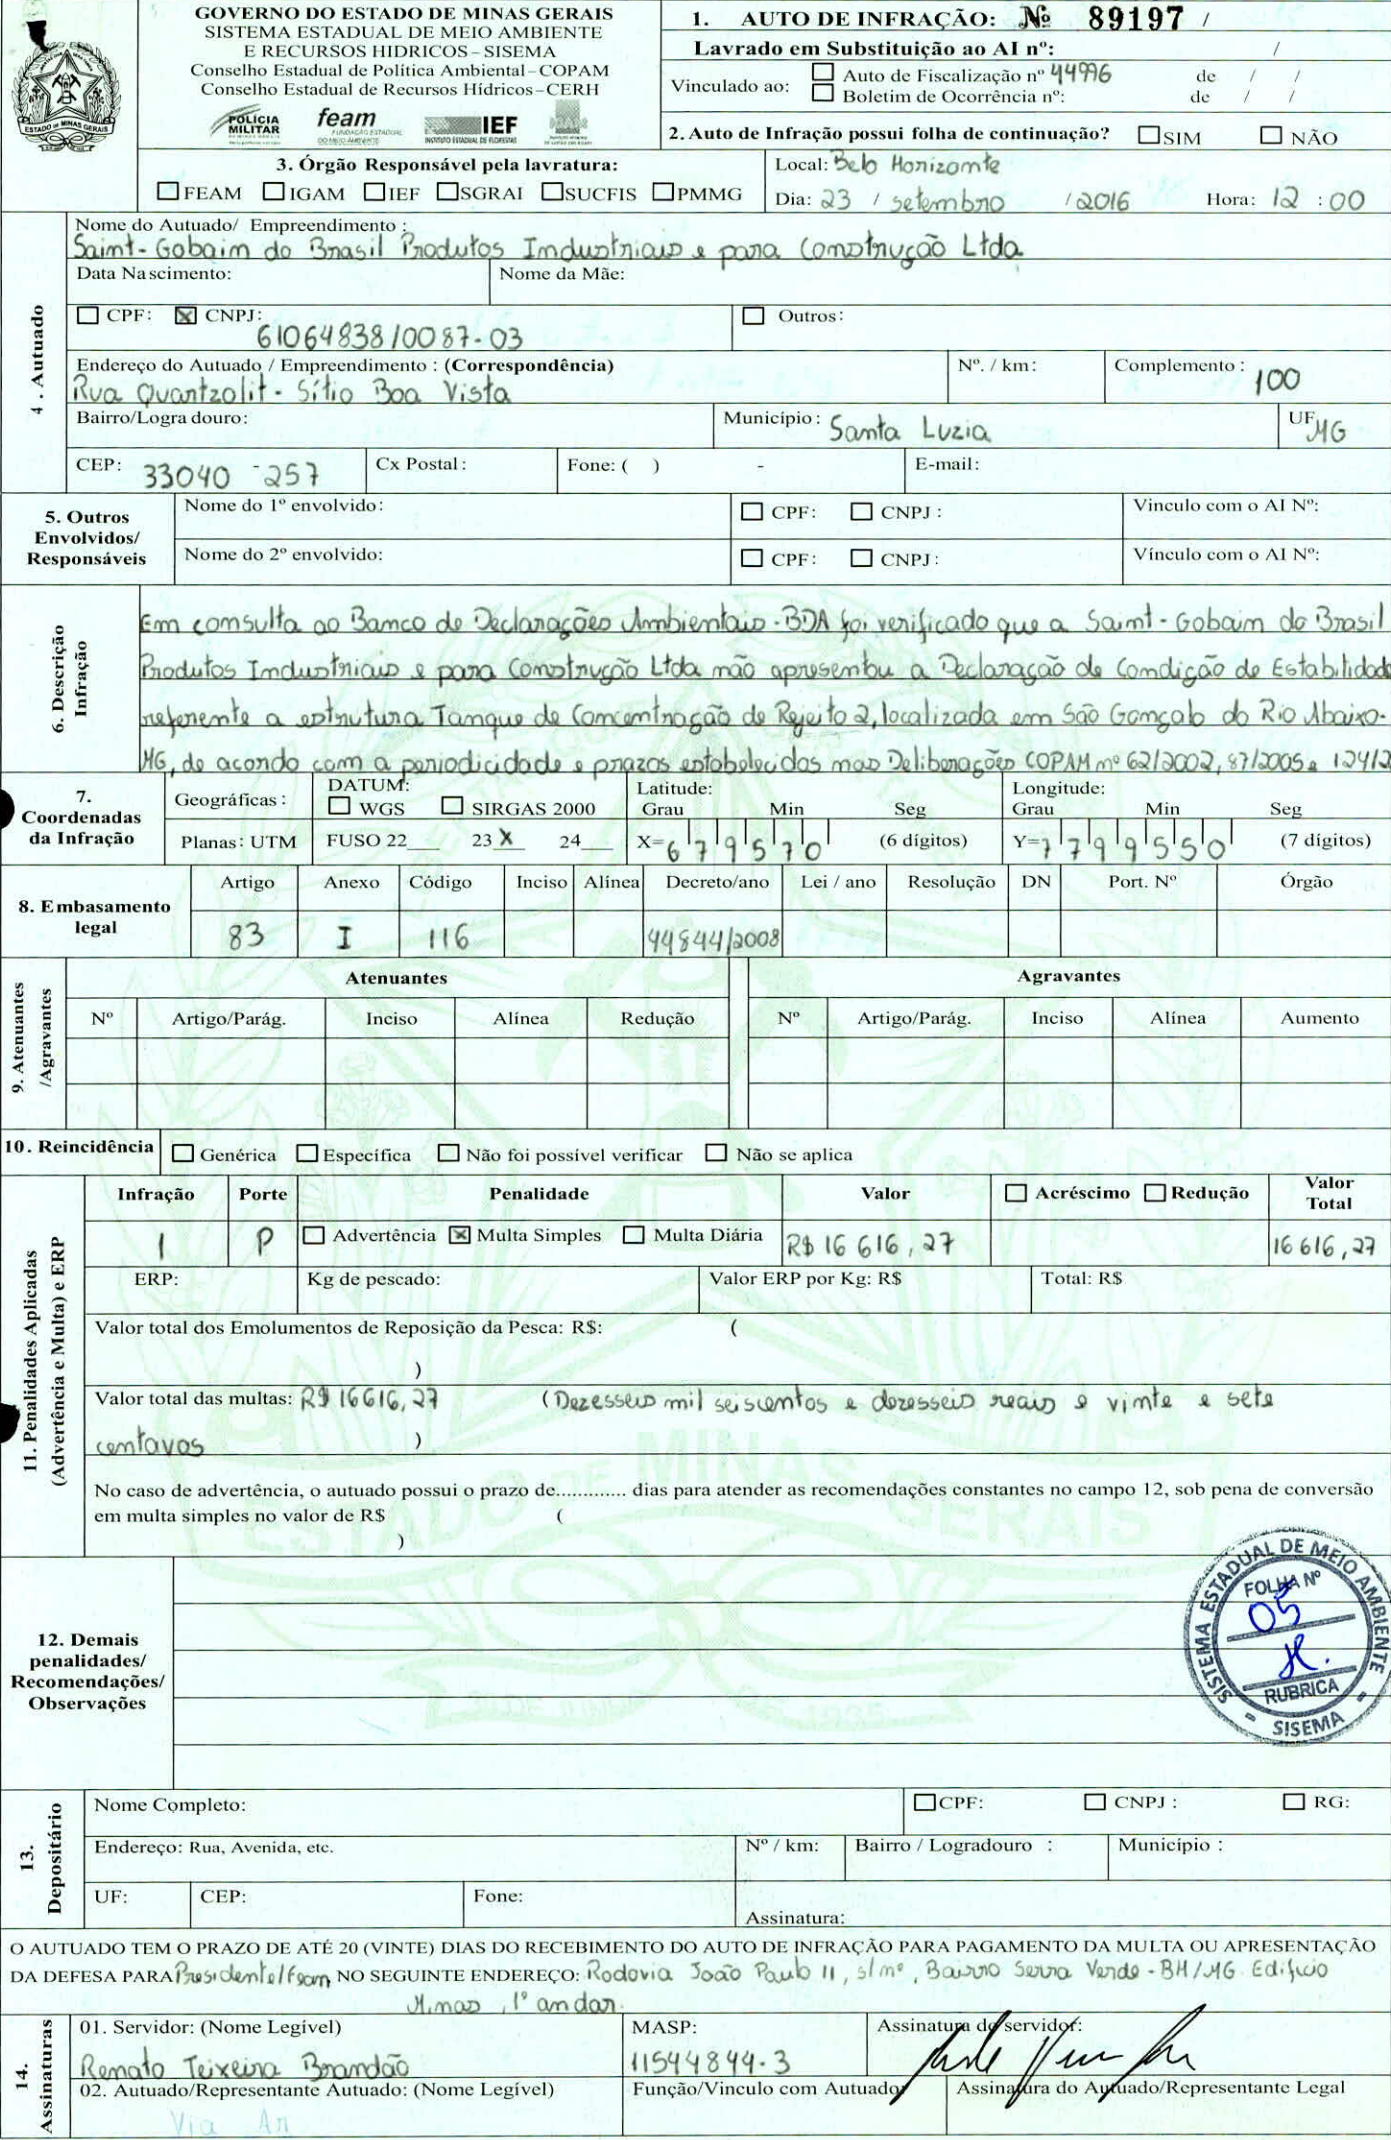 GOVERNO DO ESTADO DE MINAS GERAIS
SISTEMA ESTADUAL DE MEIO AMBIENTE
E RECURSOS HIDRICOS – SISEMA
Conselho Estadual de Política Ambiental – COPAM
Conselho Estadual de Recursos Hídricos – CERH
ESTADO DE MINAS GERAIS
POLÍCIA MILITAR feam IEF
FUNDAÇÃO ESTADUAL DO MEIO AMBIENTE INSTITUTO ESTADUAL DE FLORESTAS
1. AUTO DE INFRAÇÃO: Nº 89197 /
Lavrado em Substituição ao AI nº: /
Vinculado ao: ☐ Auto de Fiscalização nº 44996 de / /
☐ Boletim de Ocorrência nº: de / /
2. Auto de Infração possui folha de continuação? ☐ SIM ☐ NÃO
3. Órgão Responsável pela lavratura:
☐ FEAM ☐ IGAM ☐ IEF ☐ SGRAI ☐ SUCFIS ☐ PMMG
Local: Belo Horizonte
Dia: 23 / setembro / 2016 Hora: 12 : 00
4. Autuado
Nome do Autuado/ Empreendimento :
Saint-Gobain do Brasil Produtos Industriais e para Construção Ltda
Data Nascimento: Nome da Mãe:
☐ CPF: ☒ CNPJ: 61064838/0087-03 ☐ Outros:
Endereço do Autuado / Empreendimento : (Correspondência) Nº. / km: Complemento : 100
Rua Quartzolit - Sítio Boa Vista
Bairro/Logradouro: Município : Santa Luzia UF MG
CEP: 33040-257 Cx Postal: Fone: ( ) - E-mail:
5. Outros Envolvidos/ Responsáveis
Nome do 1º envolvido: ☐ CPF: ☐ CNPJ : Vinculo com o AI Nº:
Nome do 2º envolvido: ☐ CPF: ☐ CNPJ: Vínculo com o AI Nº:
6. Descrição Infração
Em consulta ao Banco de Declarações Ambientais - BDA foi verificado que a Saint-Gobain do Brasil
Produtos Industriais e para Construção Ltda não apresentou a Declaração de Condição de Estabilidade
referente a estrutura Tanque de Concentração de Rejeito 2, localizada em São Gonçalo do Rio Abaixo-
MG, de acordo com a periodicidade e prazos estabelecidos nas Deliberações COPAM nº 62/2002, 87/2005 e 124/2
7. Coordenadas da Infração
Geográficas : DATUM: ☐ WGS ☐ SIRGAS 2000 Latitude: Grau Min Seg Longitude: Grau Min Seg
Planas: UTM FUSO 22 23 X 24 X= 679570 (6 dígitos) Y= 7799550 (7 dígitos)
8. Embasamento legal
Artigo Anexo Código Inciso Alínea Decreto/ano Lei / ano Resolução DN Port. Nº Órgão
83 I 116 44844/2008
9. Atenuantes /Agravantes
Atenuantes Agravantes
Nº Artigo/Parág. Inciso Alínea Redução Nº Artigo/Parág. Inciso Alínea Aumento
10. Reincidência ☐ Genérica ☐ Específica ☐ Não foi possível verificar ☐ Não se aplica
11. Penalidades Aplicadas (Advertência e Multa) e ERP
Infração Porte Penalidade Valor ☐ Acréscimo ☐ Redução Valor Total
1 P ☐ Advertência ☒ Multa Simples ☐ Multa Diária R$ 16 616,27 16 616,27
ERP: Kg de pescado: Valor ERP por Kg: R$ Total: R$
Valor total dos Emolumentos de Reposição da Pesca: R$: (
)
Valor total das multas: R$ 16616,27 (Dezesseis mil seiscentos e dezesseis reais e vinte e sete
centavos )
No caso de advertência, o autuado possui o prazo de............. dias para atender as recomendações constantes no campo 12, sob pena de conversão
em multa simples no valor de R$ (
)
12. Demais penalidades/ Recomendações/ Observações
SISTEMA ESTADUAL DE MEIO AMBIENTE
FOLHA Nº
05
RUBRICA
– SISEMA –
13. Depositário
Nome Completo: ☐ CPF: ☐ CNPJ : ☐ RG:
Endereço: Rua, Avenida, etc. Nº / km: Bairro / Logradouro : Município :
UF: CEP: Fone: Assinatura:
O AUTUADO TEM O PRAZO DE ATÉ 20 (VINTE) DIAS DO RECEBIMENTO DO AUTO DE INFRAÇÃO PARA PAGAMENTO DA MULTA OU APRESENTAÇÃO
DA DEFESA PARA Presidente/Feam NO SEGUINTE ENDEREÇO: Rodovia João Paulo II, s/nº, Bairro Serra Verde - BH/MG Edifício
Minas, 1º andar.
14. Assinaturas
01. Servidor: (Nome Legível) MASP: Assinatura do servidor:
Renato Teixeira Brandão 11544844-3
02. Autuado/Representante Autuado: (Nome Legível) Função/Vinculo com Autuado Assinatura do Autuado/Representante Legal
Via Ar